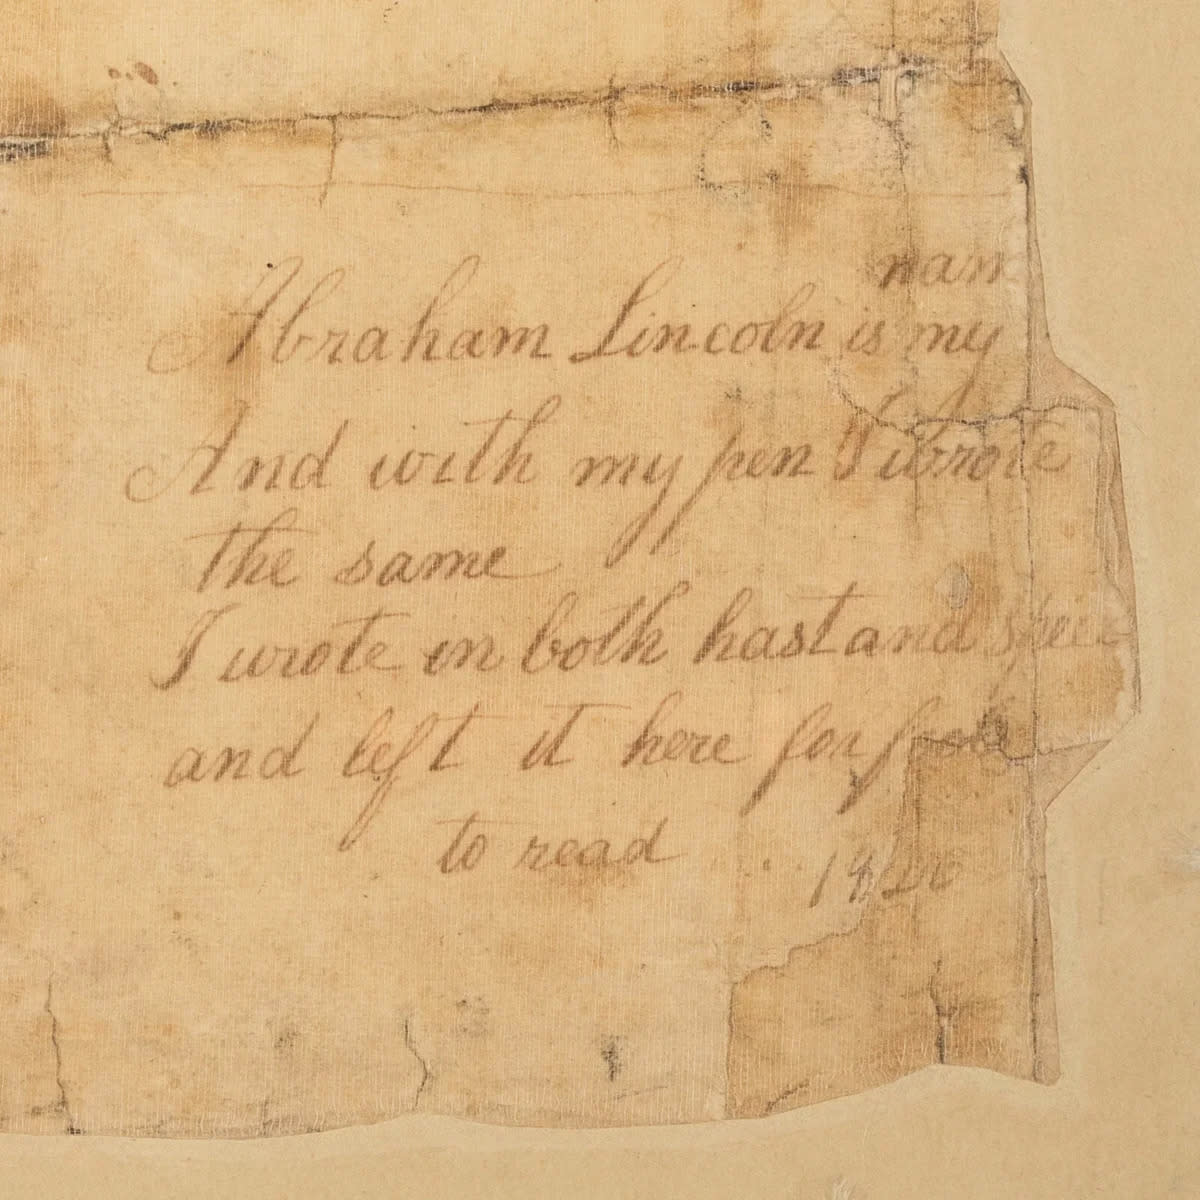 nam
Abraham Lincoln is my
And with my pen I wrote
the same
I wrote in both hast and spee
and left it here for
to read
1826